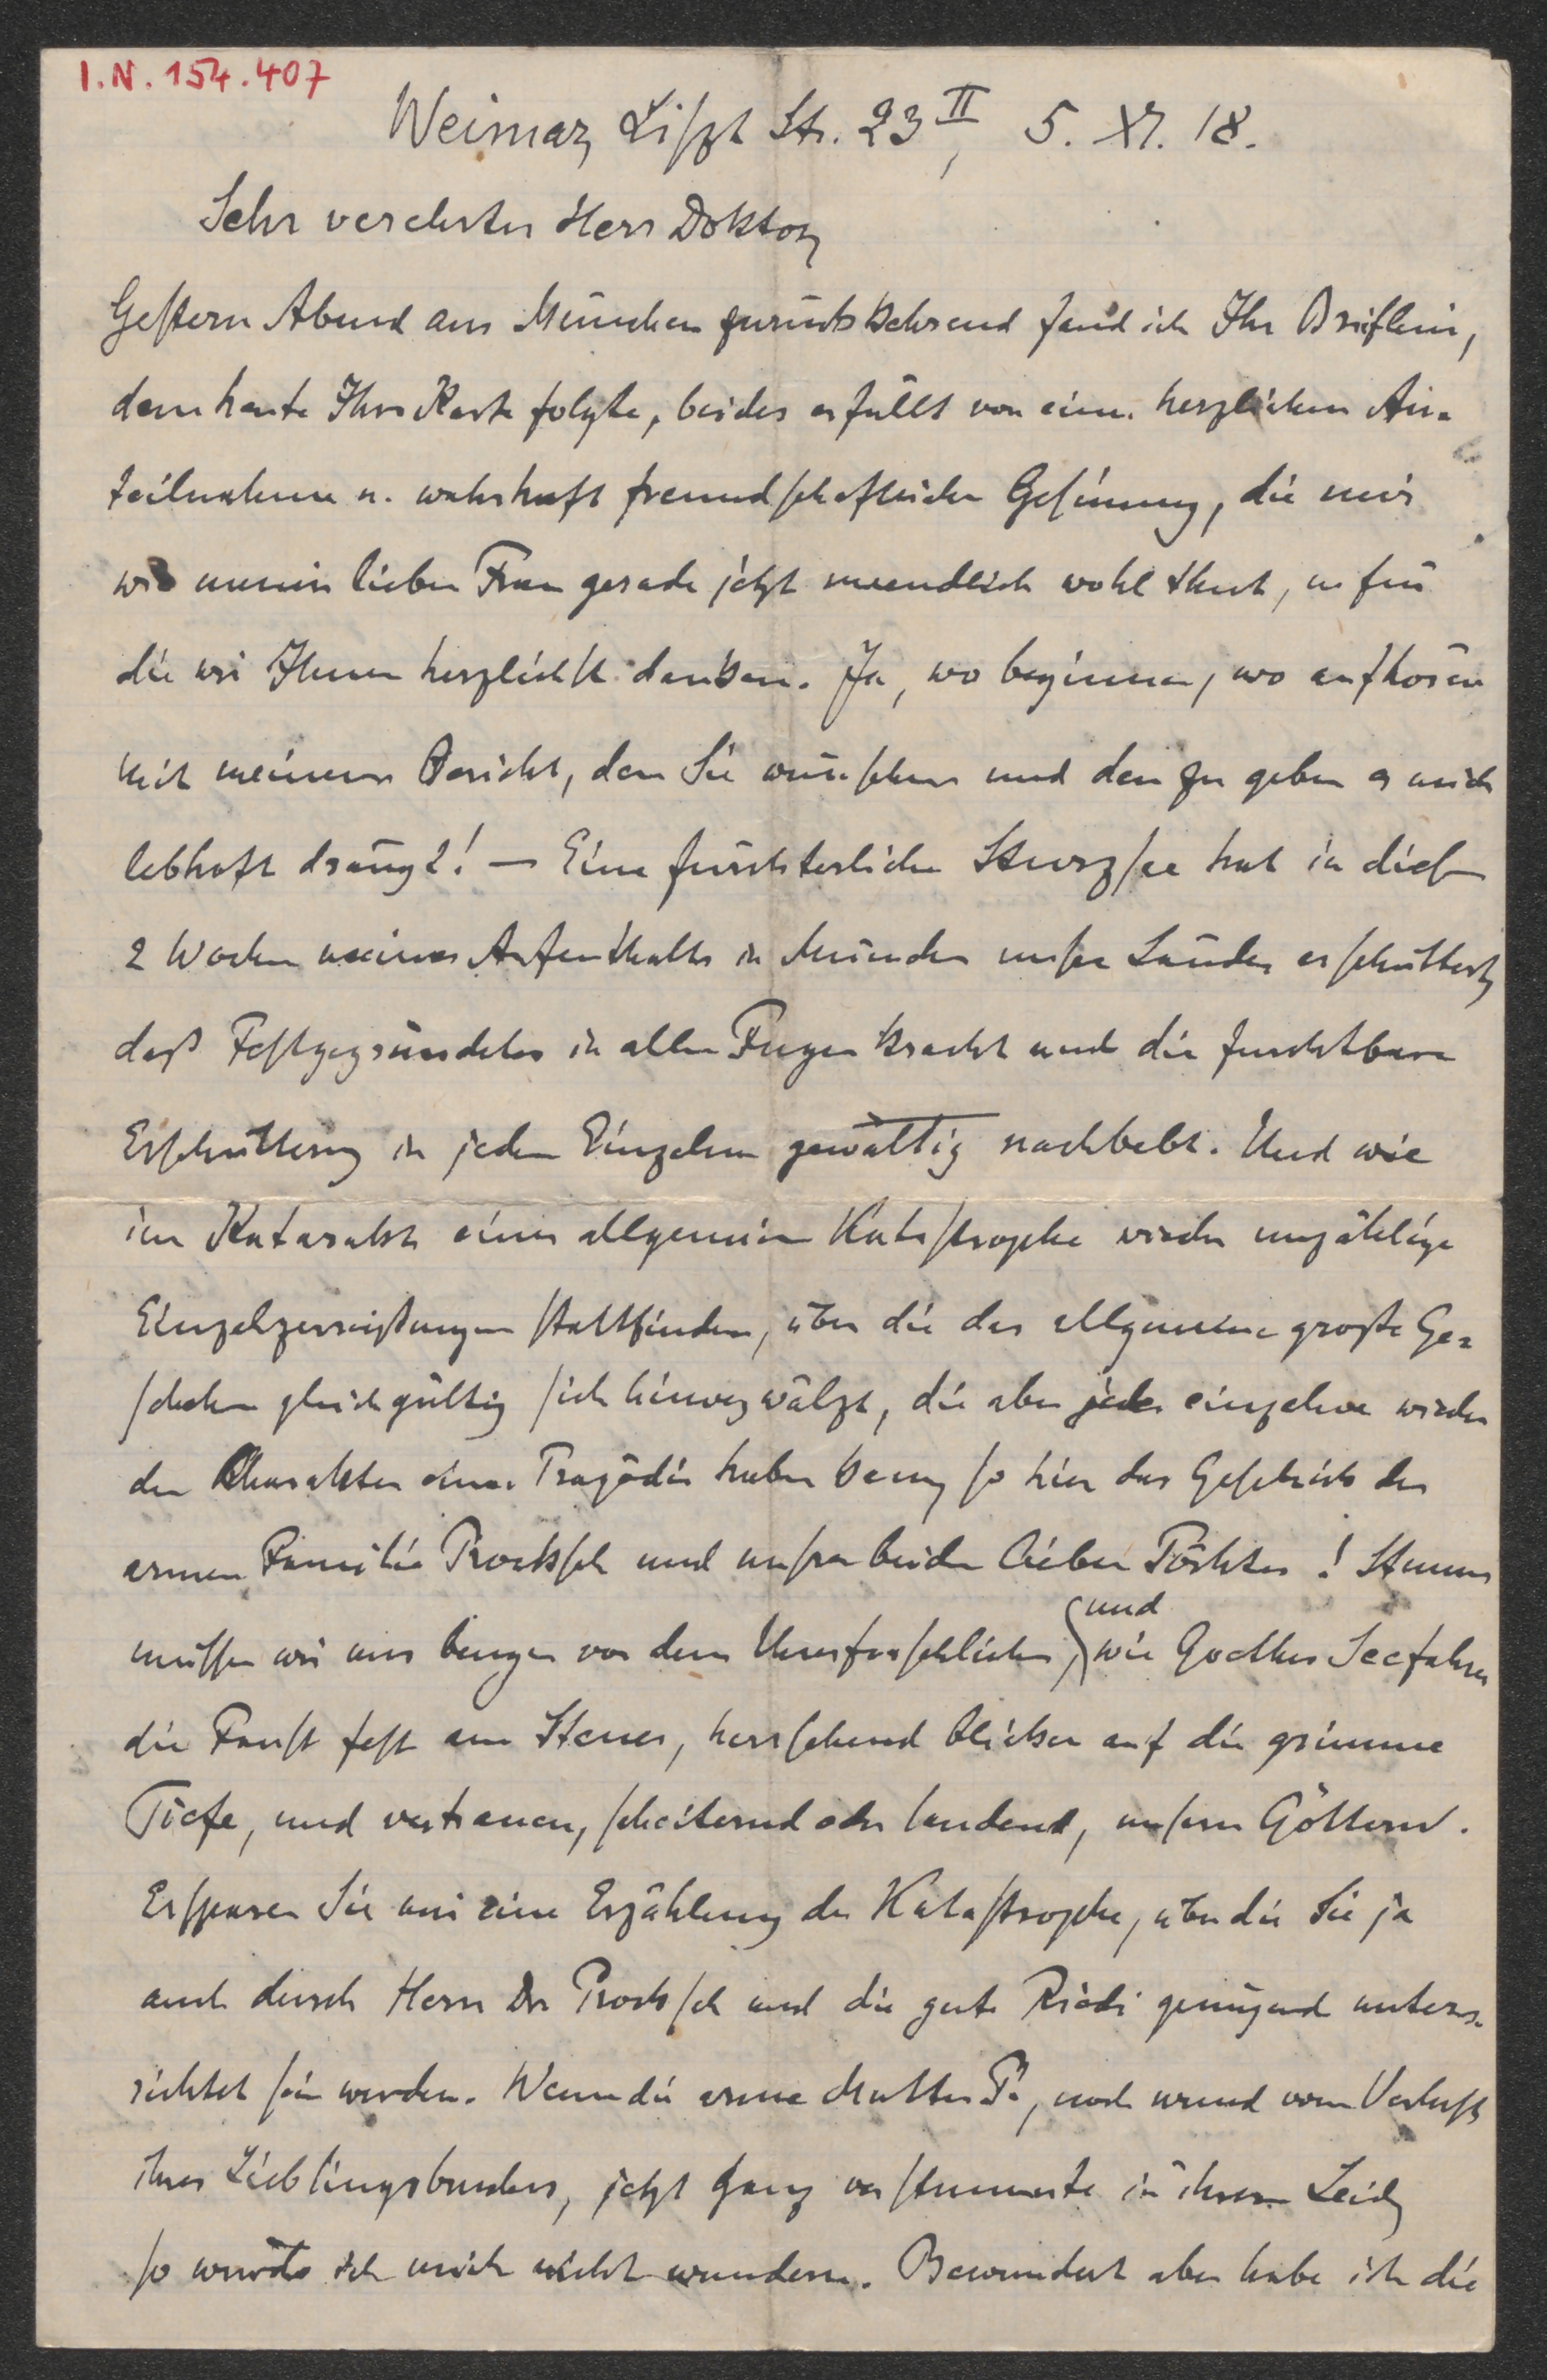 I.N. 154.407
Weimar, Liszt Str. 23 II, 5. XI. 18.
Sehr verehrter Herr Doktor,
Gestern Abend aus München zurückkehrend fand ich Ihr Brieflein,
dem heute Ihre Karte folgte, beides erfüllt von einer herzlichen An-
teilnahme u. wahrhaft freundschaftlicher Gesinnung, die mir
wie meiner lieben Frau gerade jetzt unendlich wohl thut, u. für
die wir Ihnen herzlichst danken. Ja, wo beginnen, wo aufhören
mit meinem Bericht, den Sie wünschen und den zu geben es mich
lebhaft drängt! — Eine fürchterliche Sturzsee hat in diesen
2 Wochen meines Aufenthalts in München unsre Länder erschüttert,
daß Festgegründetes in allen Fugen kracht und die furchtbare
Erschütterung in jedem Einzelnen gewaltig nachbebt. Und wie
im Katarakt einer allgemeinen Katastrophe wieder unzählige
Einzelzerreißungen stattfinden, über die das allgemeine große Ge-
schehen gleichgültig sich hinwegwälzt, die aber jede einzelne wieder
den Charakter einer Tragödie haben kann, so hier das Geschick der
armen Familie Procksch und unsrer beiden lieben Töchter! Stumm
müssen wir uns beugen vor dem Unerforschlichen, und wie Goethes Seefahrer
die Faust fest am Steuer, herrschend blicken auf die grimme
Tiefe, und vertrauen, scheiternd oder landend, unsern Göttern.
Ersparen Sie mir eine Erzählung der Katastrophe, über die Sie ja
auch durch Herrn Dr Procksch und die gute Riedi genügend unter-
richtet sein werden. Wenn die arme Mutter P., noch wund vom Verlust
ihres Lieblingsbruders, jetzt ganz verstummte in ihrem Leid,
so würde ich mich nicht wundern. Bewundert aber habe ich die